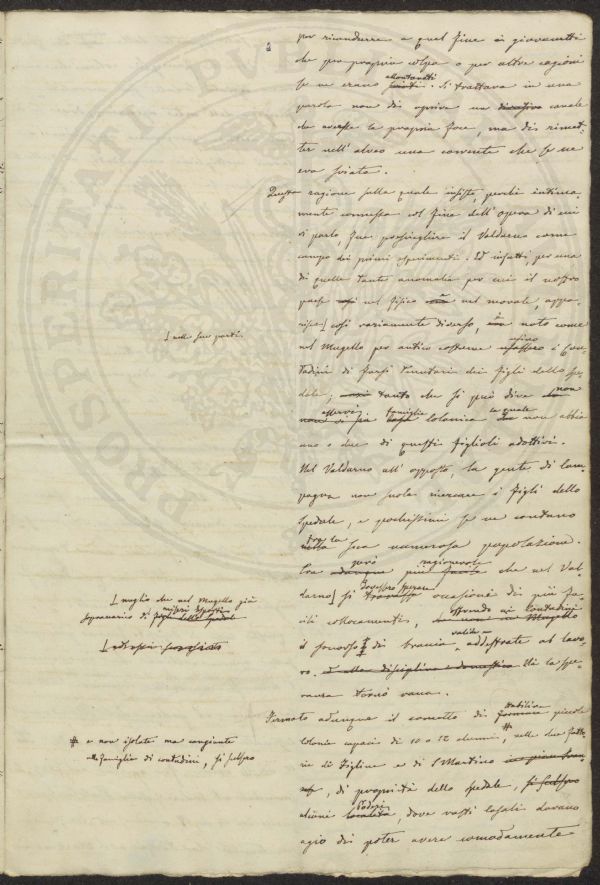 per ricondurre a quel fine i giovanetti
che per propria colpa o per altre cagioni
se ne erano allontanati. Si trattava in una
parola non di aprire un canale
che avesse la propria foce, ma di rimet-
ter nell'alveo una corrente che se ne
era sviata.
Questa ragione sulla quale insisto, perchè intima-
mente connessa col fine dell'opera di cui
si parla, fece prescegliere il Valdarno come
campo dei primi esperimenti. Ed infatti, per una
di quelle tante anomalie per cui il nostro
paese nel fisico nel morale, appa-
risce così variamente diverso, è noto come
nel Mugello per antico costume usino i Con-
tadini di farsi tenutari dei figli dello Spe-
dale; tanto che si può dire non
esservi famiglia colonica la quale non abbia
uno o due di questi figlioli adottivi.
Nel Valdarno all'opposto, la gente di cam-
pagna non suole ricercare i figli dello
Spedale, e pochissimi se ne contano
tra la sua numerosa popolazione.
Era però più ragionevole che nel Val-
darno si dovessero sperare occasioni di più fa-
cili collocamenti, offrendo ai Contadini
il soccorso di braccia valide addestrate al lavo-
ro. Ma la spe-
ranza tornò vana.
Fermato adunque il concetto di stabilire piccole
Colonie capaci di 10 o 12 alunni, nelle due Fatto-
rie di Figline e di S Martino
, di proprietà dello Spedale,
alcuni Poderi, dove vasti locali davano
agio di poter avere comodamente
nelle sue parti
meglio che nel Mugello già
# e non isolate ma congiunte
alle famiglie di contadini, si scelsero